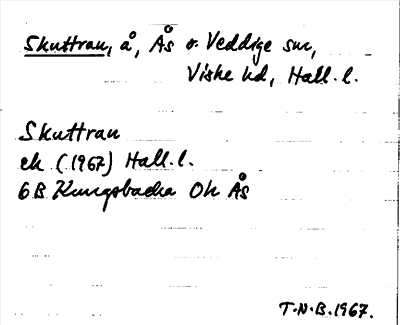 Skuttran, å, Ås o. Veddige snr,
Viske hd, Hall. l.
Skuttran
ek (1967) Hall. l.
6B Kungsbacka Oh Ås
T.N.B. 1967.